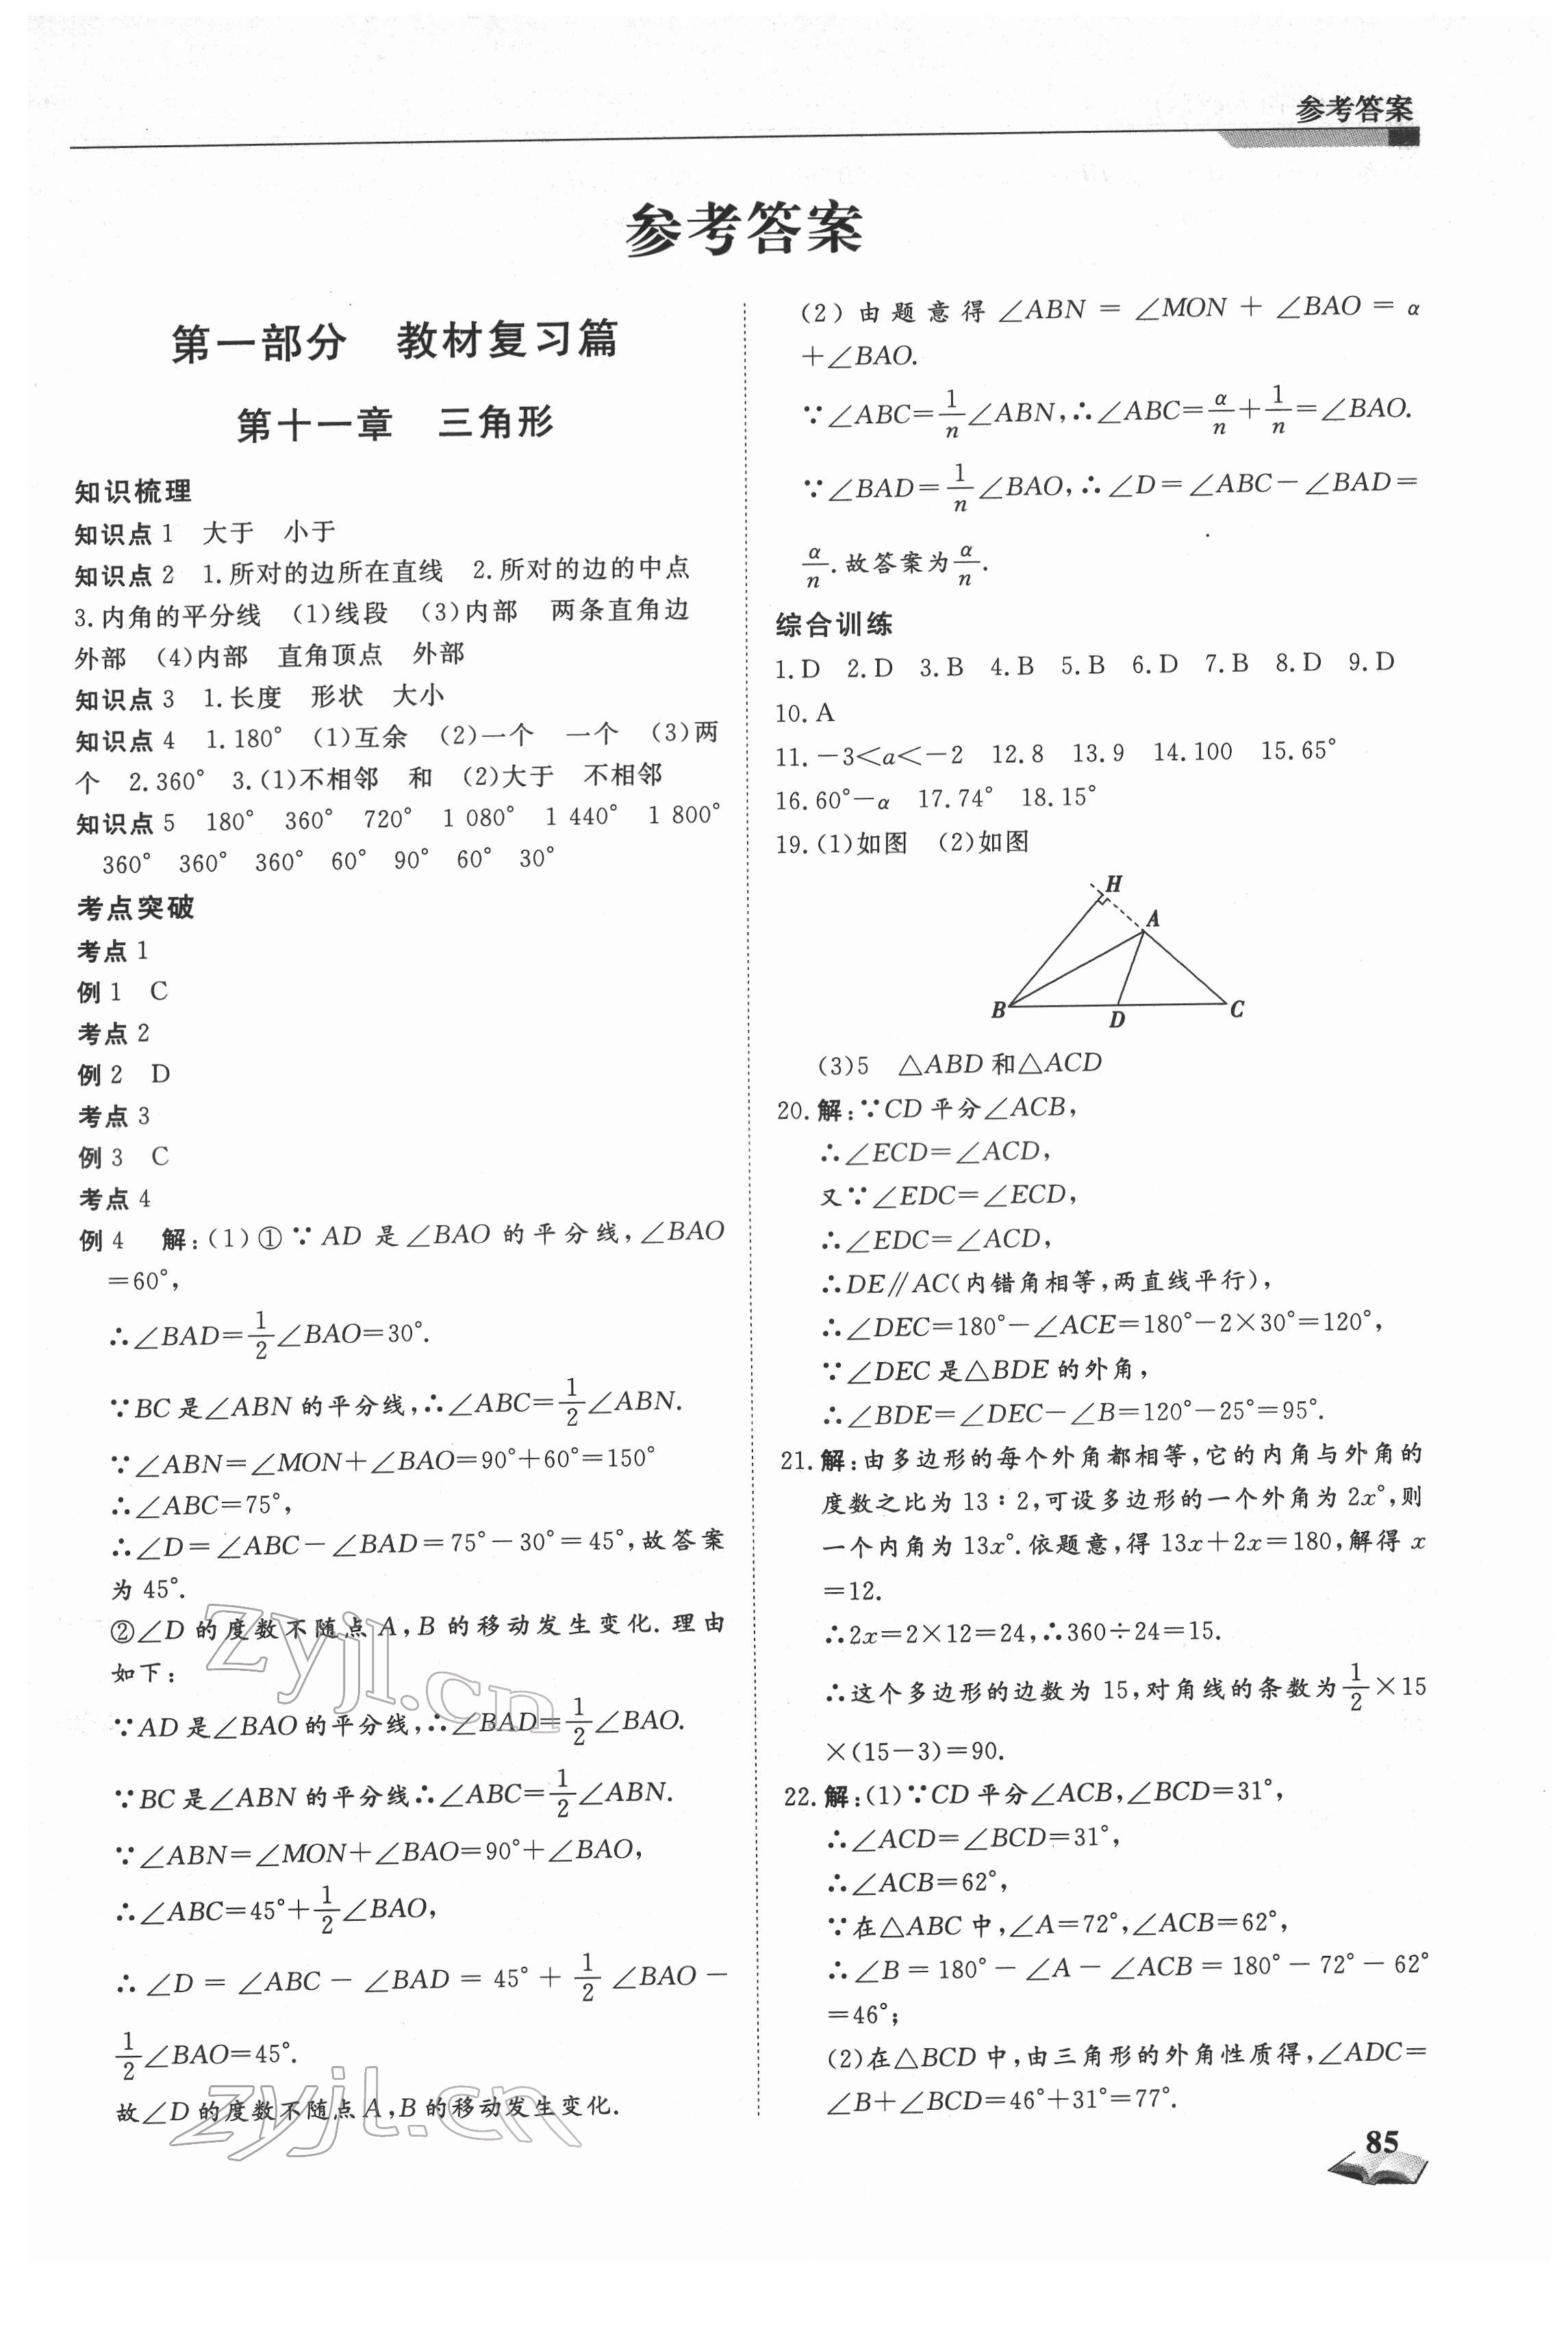 参考答案
参考答案
第一部分　教材复习篇
第十一章　三角形
知识梳理
知识点 1　大于　小于
知识点 2　1.所对的边所在直线　2.所对的边的中点
3.内角的平分线　(1)线段　(3)内部　两条直角边
外部　(4)内部　直角顶点　外部
知识点 3　1.长度　形状　大小
知识点 4　1.180°　(1)互余　(2)一个　一个　(3)两
个　2.360°　3.(1)不相邻　和　(2)大于　不相邻
知识点 5　180°　360°　720°　1 080°　1 440°　1 800°
360°　360°　360°　60°　90°　60°　30°
考点突破
考点 1
例 1　C
考点 2
例 2　D
考点 3
例 3　C
考点 4
例 4　解:(1)①∵AD 是∠BAO 的平分线,∠BAO
=60°,
∴∠BAD=1/2∠BAO=30°.
∵BC 是∠ABN 的平分线,∴∠ABC=1/2∠ABN.
∵∠ABN=∠MON+∠BAO=90°+60°=150°
∴∠ABC=75°,
∴∠D=∠ABC-∠BAD=75°-30°=45°,故答案
为 45°.
②∠D 的度数不随点 A,B 的移动发生变化.理由
如下:
∵AD 是∠BAO 的平分线,∴∠BAD=1/2∠BAO.
∵BC 是∠ABN 的平分线∴∠ABC=1/2∠ABN.
∵∠ABN=∠MON+∠BAO=90°+∠BAO,
∴∠ABC=45°+1/2∠BAO,
∴∠D=∠ABC-∠BAD=45°+1/2∠BAO-
1/2∠BAO=45°.
故∠D 的度数不随点 A,B 的移动发生变化.
(2)由题意得∠ABN=∠MON+∠BAO=α
+∠BAO.
∵∠ABC=1/n∠ABN,∴∠ABC=α/n+1/n=∠BAO.
∵∠BAD=1/n∠BAO,∴∠D=∠ABC-∠BAD=
α/n.故答案为α/n.
综合训练
1.D　2.D　3.B　4.B　5.B　6.D　7.B　8.D　9.D
10.A
11.-3<a<-2　12.8　13.9　14.100　15.65°
16.60°-α　17.74°　18.15°
19.(1)如图　(2)如图
H
A
B
D
C
(3)5　△ABD 和△ACD
20.解:∵CD 平分∠ACB,
∴∠ECD=∠ACD,
又∵∠EDC=∠ECD,
∴∠EDC=∠ACD,
∴DE∥AC(内错角相等,两直线平行),
∴∠DEC=180°-∠ACE=180°-2×30°=120°,
∵∠DEC 是△BDE 的外角,
∴∠BDE=∠DEC-∠B=120°-25°=95°.
21.解:由多边形的每个外角都相等,它的内角与外角的
度数之比为 13∶2,可设多边形的一个外角为 2x°,则
一个内角为 13x°.依题意,得 13x+2x=180,解得 x
=12.
∴2x=2×12=24,∴360÷24=15.
∴这个多边形的边数为 15,对角线的条数为1/2×15
×(15-3)=90.
22.解:(1)∵CD 平分∠ACB,∠BCD=31°,
∴∠ACD=∠BCD=31°,
∴∠ACB=62°,
∵在△ABC 中,∠A=72°,∠ACB=62°,
∴∠B=180°-∠A-∠ACB=180°-72°-62°
=46°;
(2)在△BCD 中,由三角形的外角性质得,∠ADC=
∠B+∠BCD=46°+31°=77°.
85
zyjl.cn
zyjl.cn